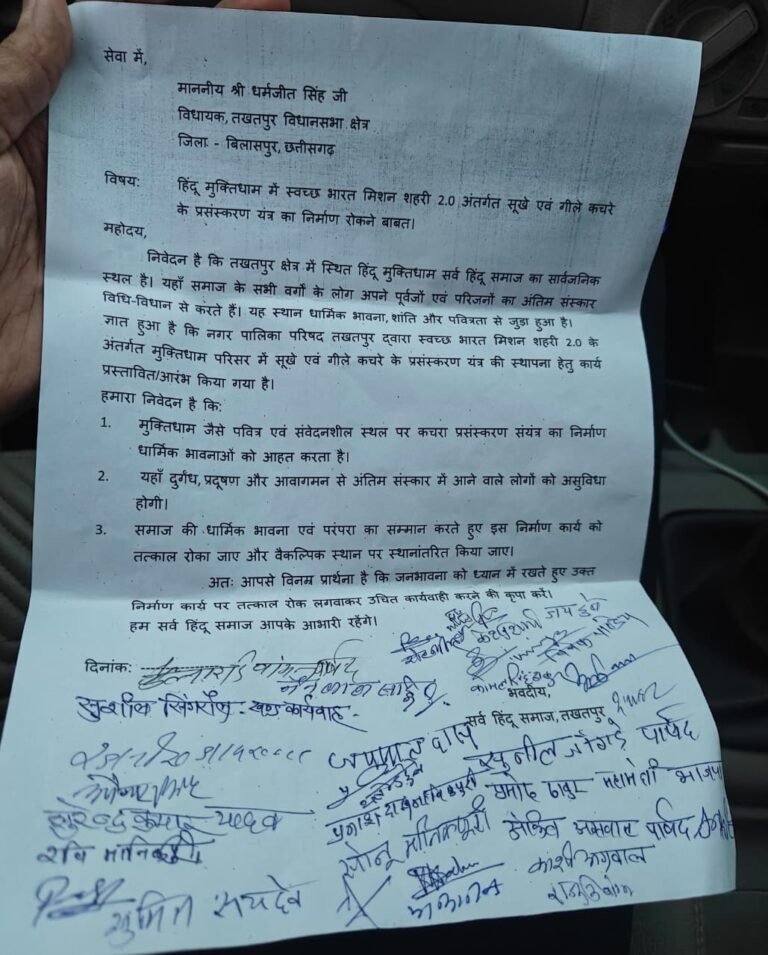 सेवा में,
माननीय श्री धर्मजीत सिंह जी
विधायक, तखतपुर विधानसभा क्षेत्र
जिला - बिलासपुर, छत्तीसगढ़
विषय: हिंदू मुक्तिधाम में स्वच्छ भारत मिशन शहरी 2.0 अंतर्गत सूखे एवं गीले कचरे
के प्रसंस्करण यंत्र का निर्माण रोकने बाबत।
महोदय,
निवेदन है कि तखतपुर क्षेत्र में स्थित हिंदू मुक्तिधाम सर्व हिंदू समाज का सार्वजनिक
स्थल है। यहाँ समाज के सभी वर्गों के लोग अपने पूर्वजों एवं परिजनों का अंतिम संस्कार
विधि-विधान से करते हैं। यह स्थान धार्मिक भावना, शांति और पवित्रता से जुड़ा हुआ है।
ज्ञात हुआ है कि नगर पालिका परिषद तखतपुर द्वारा स्वच्छ भारत मिशन शहरी 2.0 के
अंतर्गत मुक्तिधाम परिसर में सूखे एवं गीले कचरे के प्रसंस्करण यंत्र की स्थापना हेतु कार्य
प्रस्तावित/आरंभ किया गया है।
हमारा निवेदन है कि:
1. मुक्तिधाम जैसे पवित्र एवं संवेदनशील स्थल पर कचरा प्रसंस्करण संयंत्र का निर्माण
धार्मिक भावनाओं को आहत करता है।
2. यहाँ दुर्गंध, प्रदूषण और आवागमन से अंतिम संस्कार में आने वाले लोगों को असुविधा
होगी।
3. समाज की धार्मिक भावना एवं परंपरा का सम्मान करते हुए इस निर्माण कार्य को
तत्काल रोका जाए और वैकल्पिक स्थान पर स्थानांतरित किया जाए।
अतः आपसे विनम्र प्रार्थना है कि जनभावना को ध्यान में रखते हुए उक्त
निर्माण कार्य पर तत्काल रोक लगवाकर उचित कार्यवाही करने की कृपा करें।
हम सर्व हिंदू समाज आपके आभारी रहेंगे।
दिनांक:
भवदीय,
सुशील सिंगरौल - खण्ड कार्यवाह
सर्व हिंदू समाज, तखतपुर
सुनील जांगड़े पार्षद
महामंत्री भाजपा
सुरेन्द्र कुमार यादव
सोनू मानिकपुरी
पार्षद
रवि मानिकपुरी
अग्रवाल
सुमित सचदेव